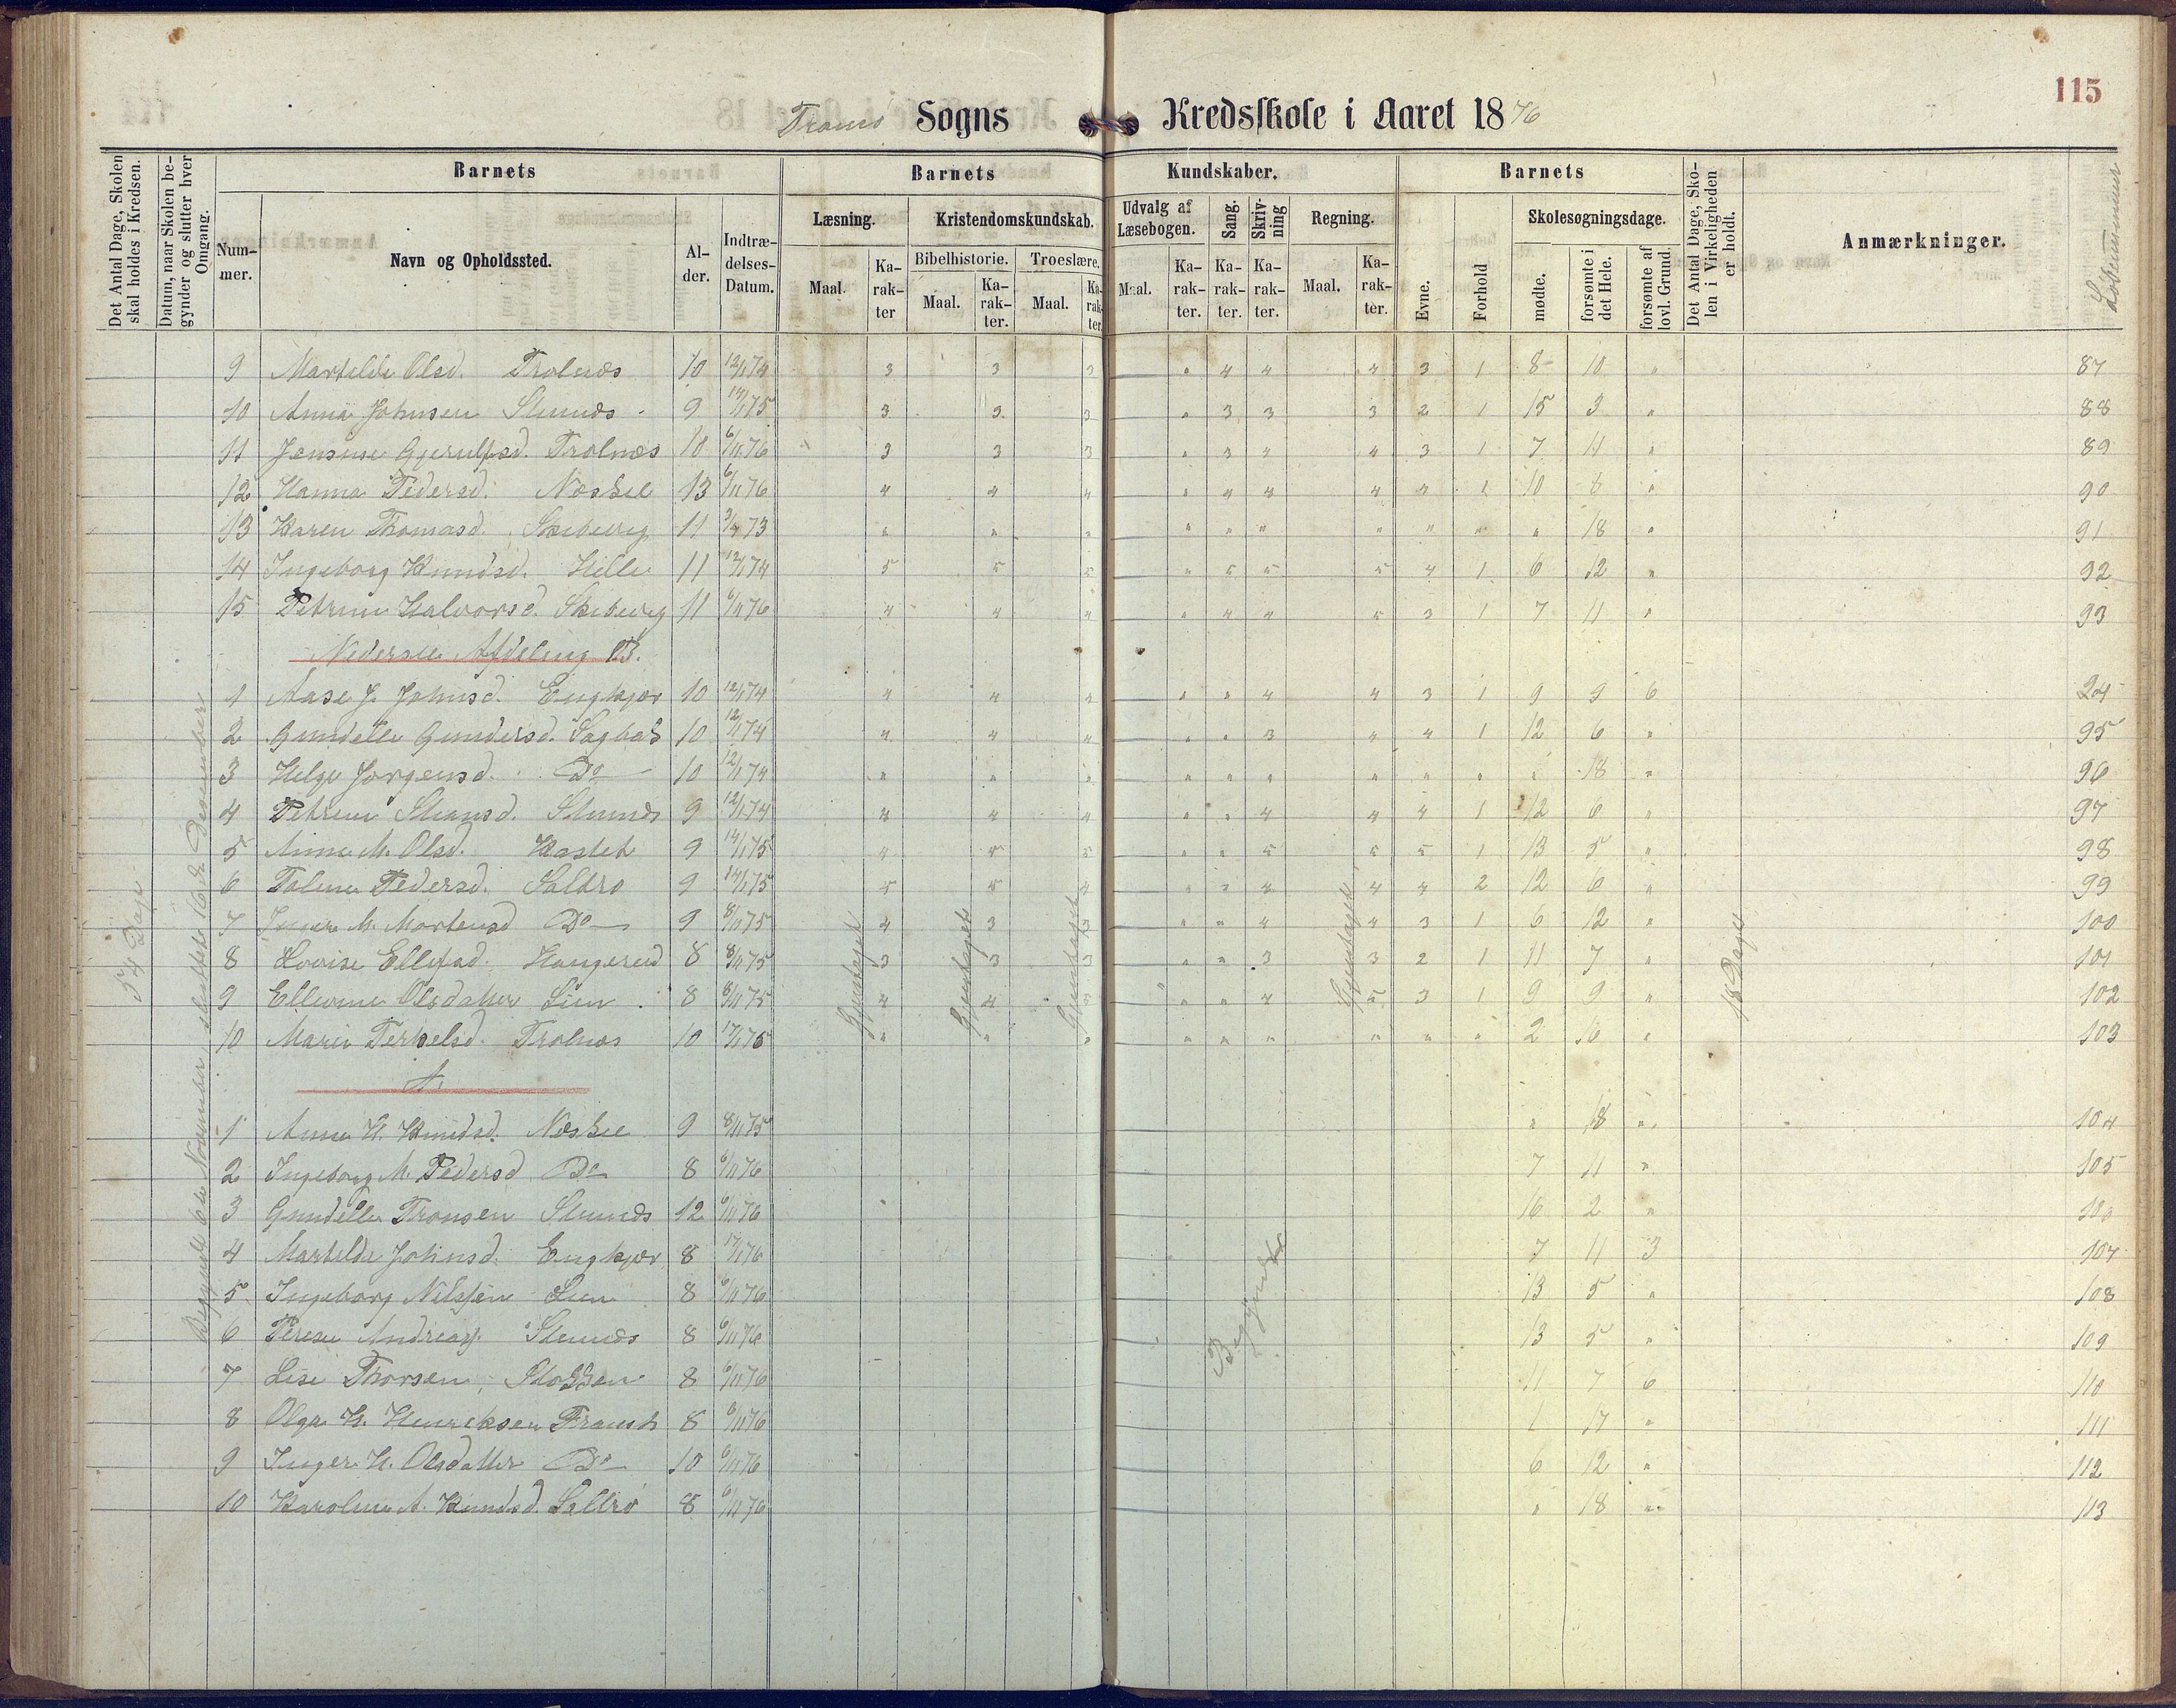 115
Tromø Sogns Kredsskole i Aaret 1876
Det Antal Dage, Skolen skal holdes i Kredsen.
Datum, naar Skolen begynder og slutter hver Omgang.
Barnets
Barnets
Kundskaber.
Barnets
Det Antal Dage, Skolen i Virkeligheden er holdt.
Anmærkninger.
Løbenummer
Nummer.
Navn og Opholdssted.
Alder.
Indtrædelses-Datum.
Læsning.
Kristendomskundskab.
Udvalg af Læsebogen.
Sang.
Skrivning
Regning.
Evne.
Forhold
Skolesøgningsdage.
Bibelhistorie.
Troeslære.
Maal.
Karakter
Maal.
Karakter.
Maal.
Karakter.
Maal.
Karakter.
Karakter.
Karakter.
Maal.
Karakter.
mødte.
forsømte i det Hele.
forsømte af lovl. Grund.
9 Mathilde Olsd. Trolnæs 10 12/1 74 3 3 3 " 4 4 4 3 1 8 10 " 87
10 Anna Johnsen Stuenæs 9 14/1 75 3 3 3 " 3 3 3 2 1 15 3 " 88
11 Jensine Gjerulfsd. Trolnæs 10 6/11 76 3 3 3 " 3 4 4 3 1 7 11 " 89
12 Hanna Pedersd. Næskil 13 6/11 76 4 4 4 " 4 4 4 4 1 10 8 " 90
13 Karen Thomasd. Skiberig 11 73 " " " " " " " " " " 18 " 91
14 Ingeborg Knudsd. Hille 11 12/1 74 5 5 5 " 5 5 5 4 1 6 12 " 92
15 Petrine Halvorsd. Skiberig 11 6/11 76 4 4 4 " 4 4 5 3 1 7 11 " 93
Nederste Afdeling B.
1 Aase J. Johnsd. Engkjær 10 12/1 74 4 4 4 " " 4 4 3 1 9 9 6 24
2 Gundelle Gundersd. 10 12/1 74 4 4 4 " " 3 4 4 1 12 6 " 95
3 Helge Jørgensd. Do 10 12/1 74 " " " " " " " " " " 18 " 96
4 Petrine Stiansd. Stuenæs 9 12/1 74 4 4 4 " " 4 4 4 1 12 6 " 97
5 Anne M. Olsd. Hastet 9 14/1 75 4 4 5 " " 5 5 5 1 13 5 " 98
6 Taline Pedersd. Saltrø 9 14/1 75 5 5 4 " " 4 4 4 2 12 6 " 99
7 Inger M. Mortensd Do 9 8/11 75 4 3 3 " " 4 4 3 1 6 12 " 100
8 Lovise Ellefsd. Haugerud 8 8/11 75 3 3 3 " " 3 3 2 1 11 7 " 101
9 Ellevine Olsdatter Lien 8 8/11 75 4 4 " " " 4 5 3 1 9 9 " 102
10 Marie Terkelsd. Trolnæs 10 17/1 75 " " " " " " " " " 2 16 " 103
A.
1 Anne K. Knudsd. Næskil 9 8/11 75 " 18 " 104
2 Ingeborg M. Pedersd Do 8 6/11 76 7 11 " 105
3 Gundelle Tronsen Stuenæs 12 6/11 76 16 2 " 106
4 Mathilde Johnsd. Engkjær 8 17/1 76 7 11 3 107
5 Ingeborg Nilssen Lien 8 6/11 76 13 5 " 108
6 Terese Andreas. Stuenæs 8 6/11 76 13 5 " 109
7 Lise Thorsen, 8 6/11 76 11 7 6 110
8 Olga H. Henriksen 8 6/11 76 1 17 " 111
9 Inger H. Olsdatter Do 10 6/11 76 6 12 " 112
10 Karoline A. Knudsd. Saltrø 8 6/11 76 " 18 " 113
54 Dage
Begyndt 6te November, sluttet 16de December
Gjentaget
Gjentaget
Gjentaget
Gjentaget
Begyndte
18 Dage